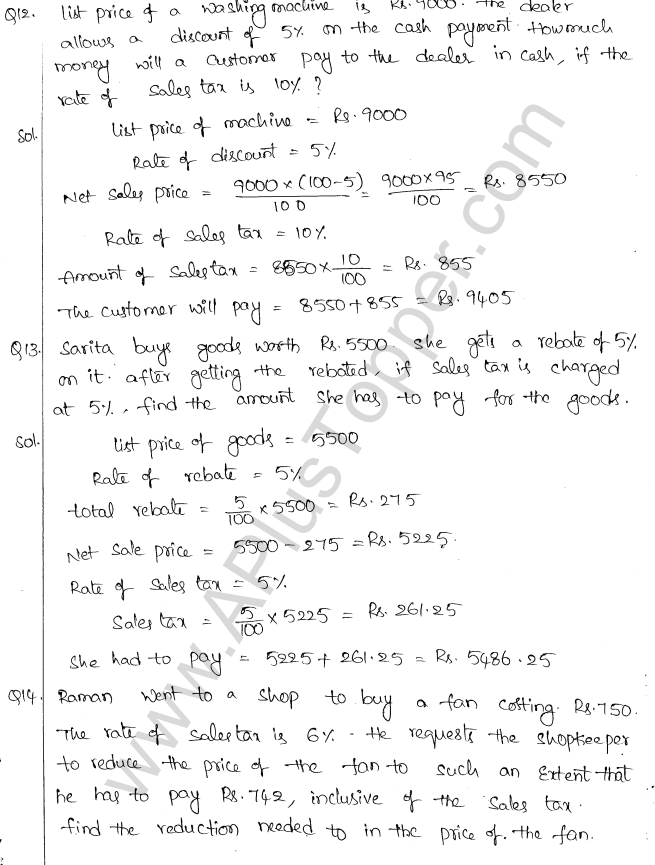 Q12. list price of a washing machine is Rs. 9000. The dealer
allows a discount of 5% on the cash payment. How much
money will a customer pay to the dealer in cash, if the
rate of sales tax is 10% ?
Sol. list price of machine = Rs. 9000
Rate of discount = 5%
Net sales price = 9000 × (100-5) / 100 = 9000×95 / 100 = Rs. 8550
Rate of sales tax = 10%
Amount of sales tax = 8550 × 10/100 = Rs. 855
The customer will pay = 8550 + 855 = Rs. 9405
Q13. Sarita buys goods worth Rs. 5500. She gets a rebate of 5%
on it. after getting the rebated, if sales tax is charged
at 5%, find the amount she has to pay for the goods.
Sol. list price of goods = 5500
Rate of rebate = 5%
total rebate = 5/100 × 5500 = Rs. 275
Net sale price = 5500 - 275 = Rs. 5225.
Rate of sales tax = 5%
Sales tax = 5/100 × 5225 = Rs. 261.25
She had to pay = 5225 + 261.25 = Rs. 5486.25
Q14. Raman went to a shop to buy a fan costing Rs. 750.
The rate of sales tax is 6%. He requests the shopkeeper
to reduce the price of the fan to such an Extent that
he has to pay Rs. 742, inclusive of the sales tax.
find the reduction needed to in the price of. the fan.
www.APlusTopper.com